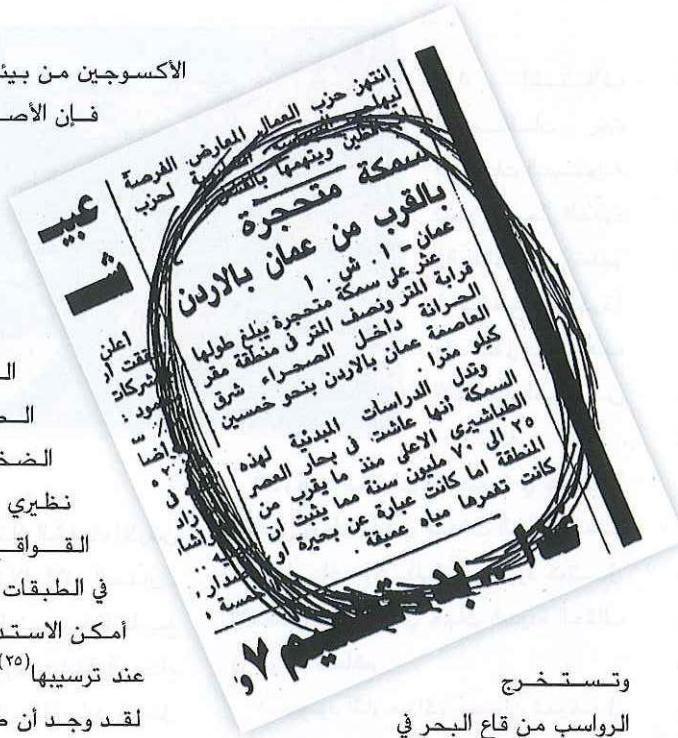 الأكسوجين من بيئ
فإن الأصـ
انتهز حزب العمال المعارض الفرصة
لحزب
ويتهمها
سمكة متحجرة
بالقرب من عمان بالاردن
عمان - ا . ش . ا
عثر على سمكة متحجرة يبلغ طولها
قرابة المتر ونصف المتر فى منطقة مقر
الحرانة داخل الصحراء شرق
العاصمة عمان بالاردن بنحو خمسين
كيلو مترا .
وتدل الدراسات المبدئية لهذه
السمكة أنها عاشت فى بحار العصر
الطباشيري الاعلى منذ ما يقرب من
٢٥ الى ٧٠ مليون سنة مما يثبت ان
المنطقة اما كانت عبارة عن بحيرة او
كانت تغمرها مياه عميقة .
عبيـ
شـ
اعلن
شركات
الضخـ
نظيري
القواقـ
في الطبقات
أمكن الاستد
عند ترسيبها(٢٥)
لقد وجد أن
وتستخرج
الرواسب من قاع البحر في